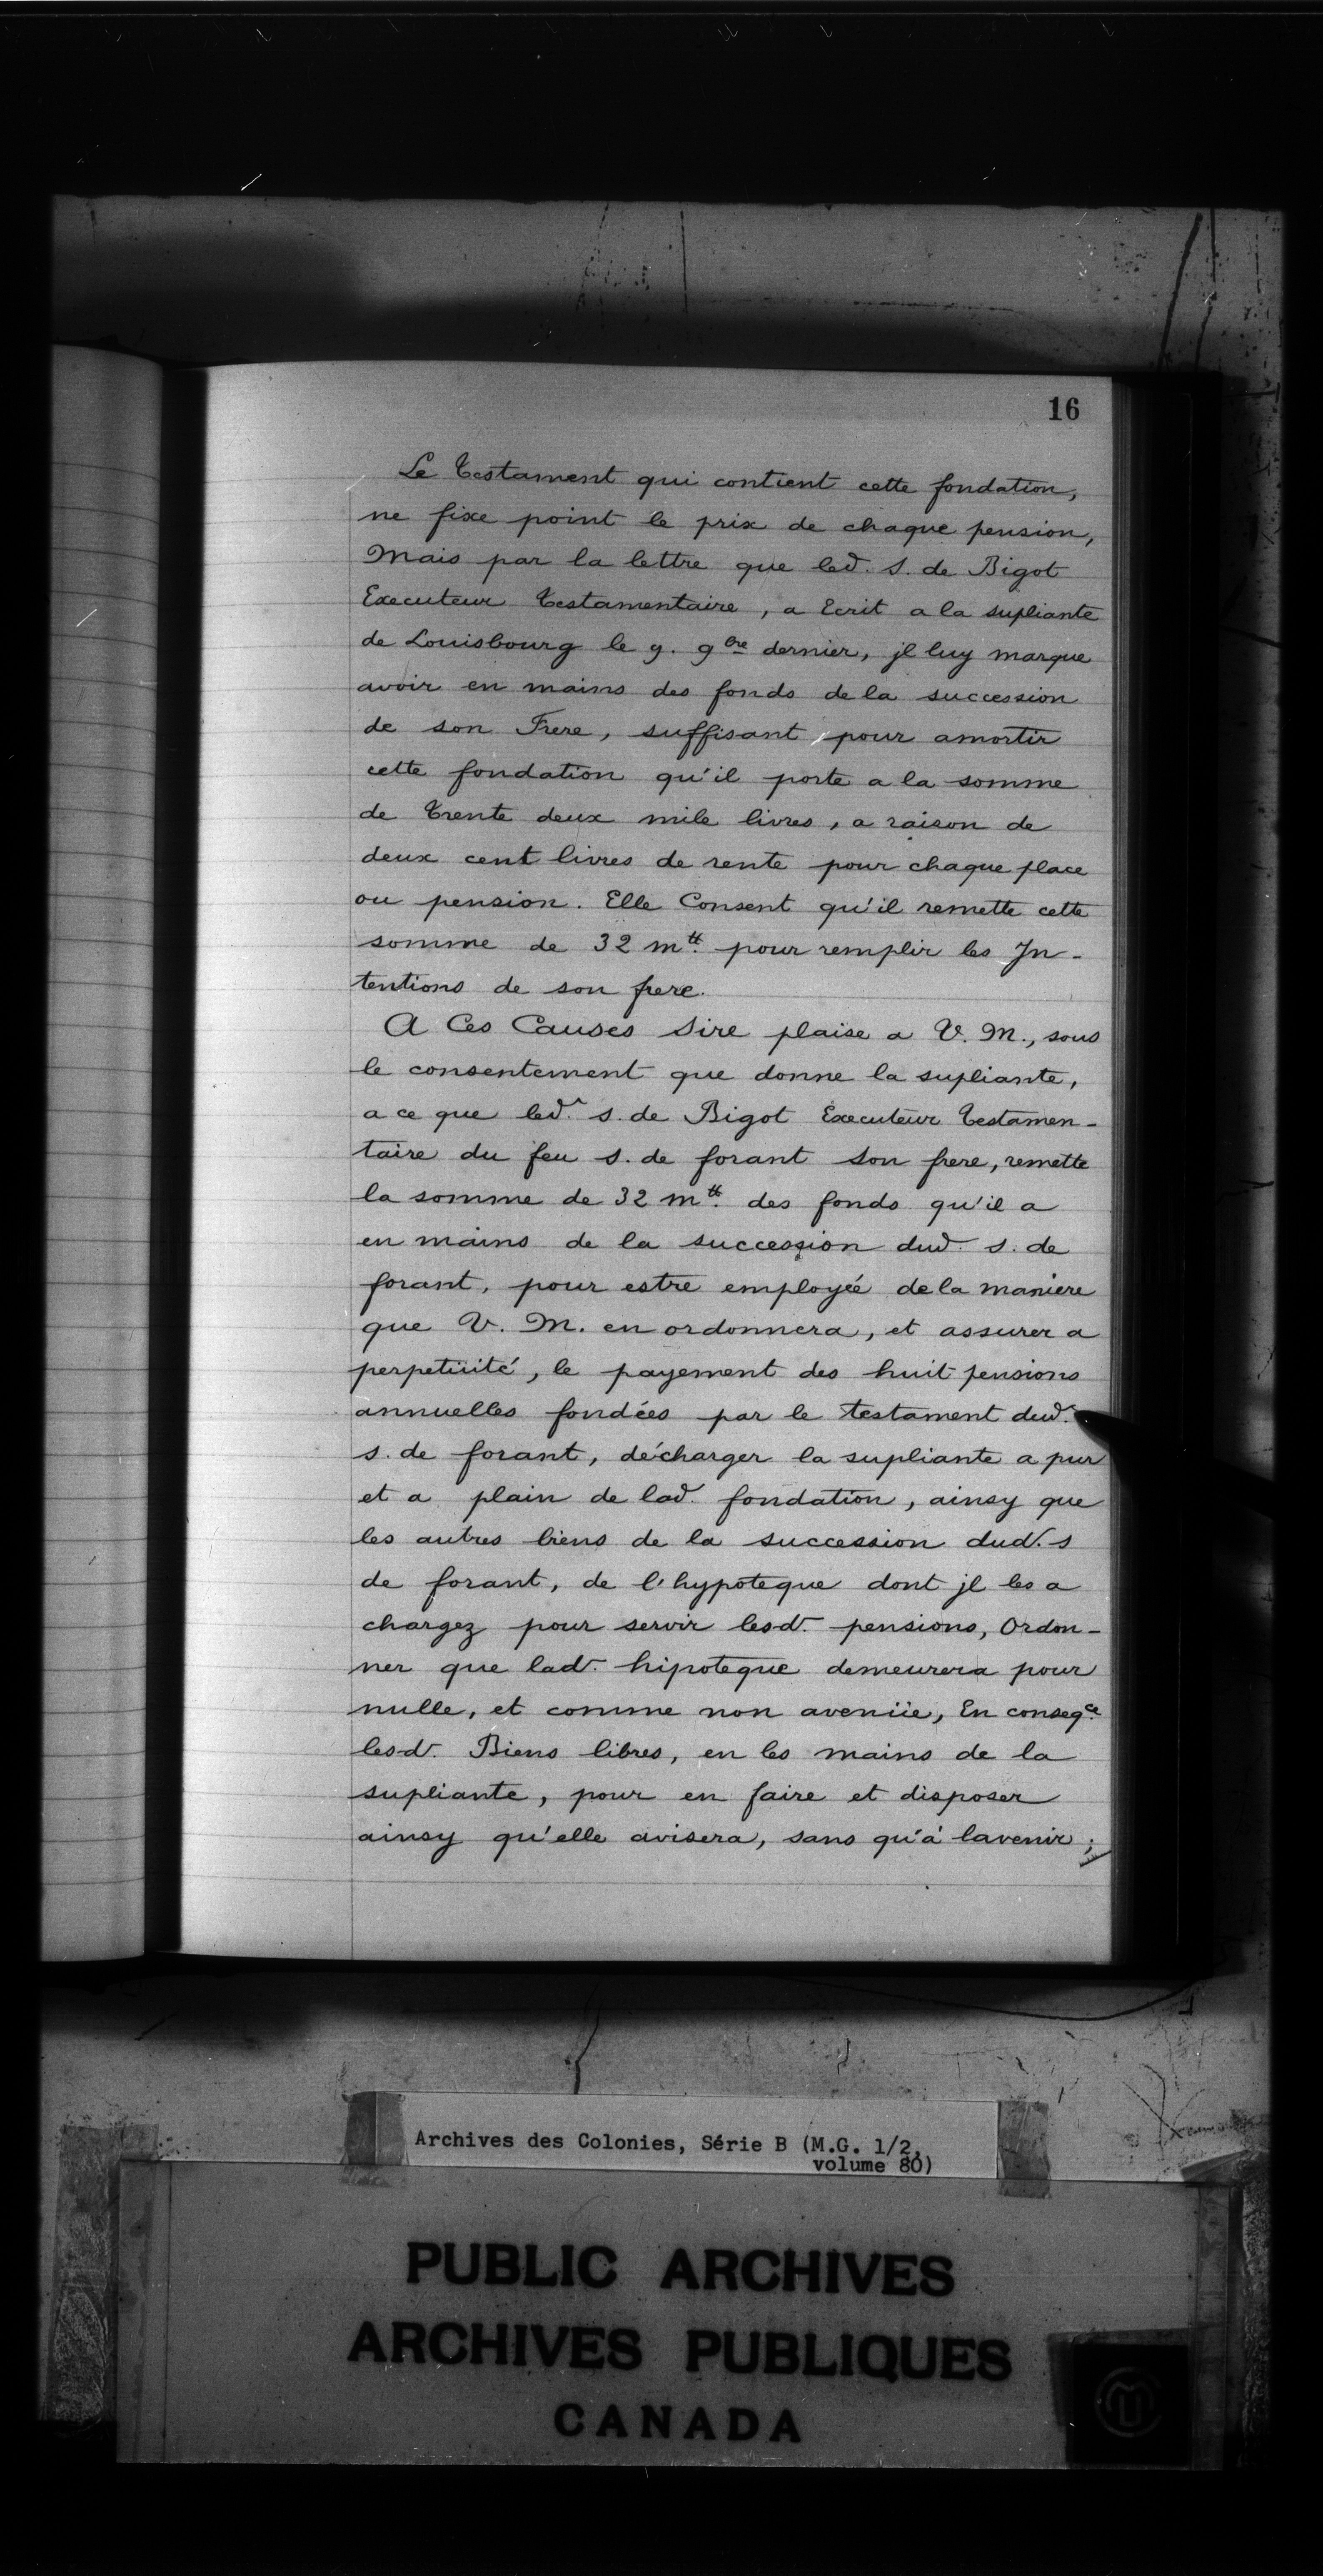 16
Le Testament qui contient cette fondation,
ne fixe point le prix de chaque pension,
Mais par la lettre que led. s. de Bigot
Executeur Testamentaire, a Ecrit a la supliante
de Louisbourg le 9. 9bre dernier, jl luy marque
avoir en mains des fonds de la succession
de son Frere, suffisant, pour amortir
cette fondation qu'il porte a la somme
de Trente deux mile livres, a raison de
deux cent livres de rente pour chaque place
ou pension. Elle Consent qu'il remette cette
somme de 32 mtt. pour remplir les Jn-
tentions de son frere.
A Ces Causes Sire plaise a V. M., sous
le consentement que donne la supliante,
a ce que led. s. de Bigot Executeur Testamen-
taire du feu s. de forant son frere, remette
la somme de 32 mtt. des fonds qu'il a
en mains de la succession dud. s. de
forant, pour estre employée de la maniere
que V. M. en ordonnera, et assurer a
perpetüité, le payement des huit pensions
annuelles fondées par le testament dud.
s. de forant, décharger la supliante a pur
et a plain de lad. fondation, ainsy que
les autres biens de la succession dud. s
de forant, de l'hypoteque dont jl les a
chargez pour servir lesd. pensions, Ordon-
ner que lad. hipoteque demeurera pour
nulle, et comme non avenüe, En conseqce
lesd. Biens libres, en les mains de la
supliante, pour en faire et disposer
ainsy qu'elle avisera, sans qu'à lavenir;
Archives des Colonies, Série B (M.G. 1/2,
volume 80)
PUBLIC ARCHIVES
ARCHIVES PUBLIQUES
CANADA